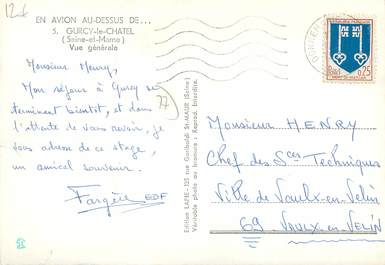 12 €
EN AVION AU-DESSUS DE...
5. GURCY-le-CHATEL
(Seine-et-Marne)
Vue générale
Monsieur Henry,
Mon séjour à Gurcy se
terminant bientôt, et dans
l'attente de vous revoir, je
vous adresse de ce stage,
un amical souvenir.
Fargère EDF
77
Edition LAPIE - 125 rue Garibaldi St-MAUR (Seine)
Véritable photo au bromure - Reprod. Interdite.
0,25
Monsieur HENRY
Chef des Sces Techniques
Ville de Vaulx-en-Velin
69 VAULX-en-VELIN